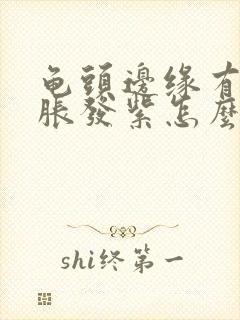 龟頭邊缘有
脹發紫怎麼
shi终第一